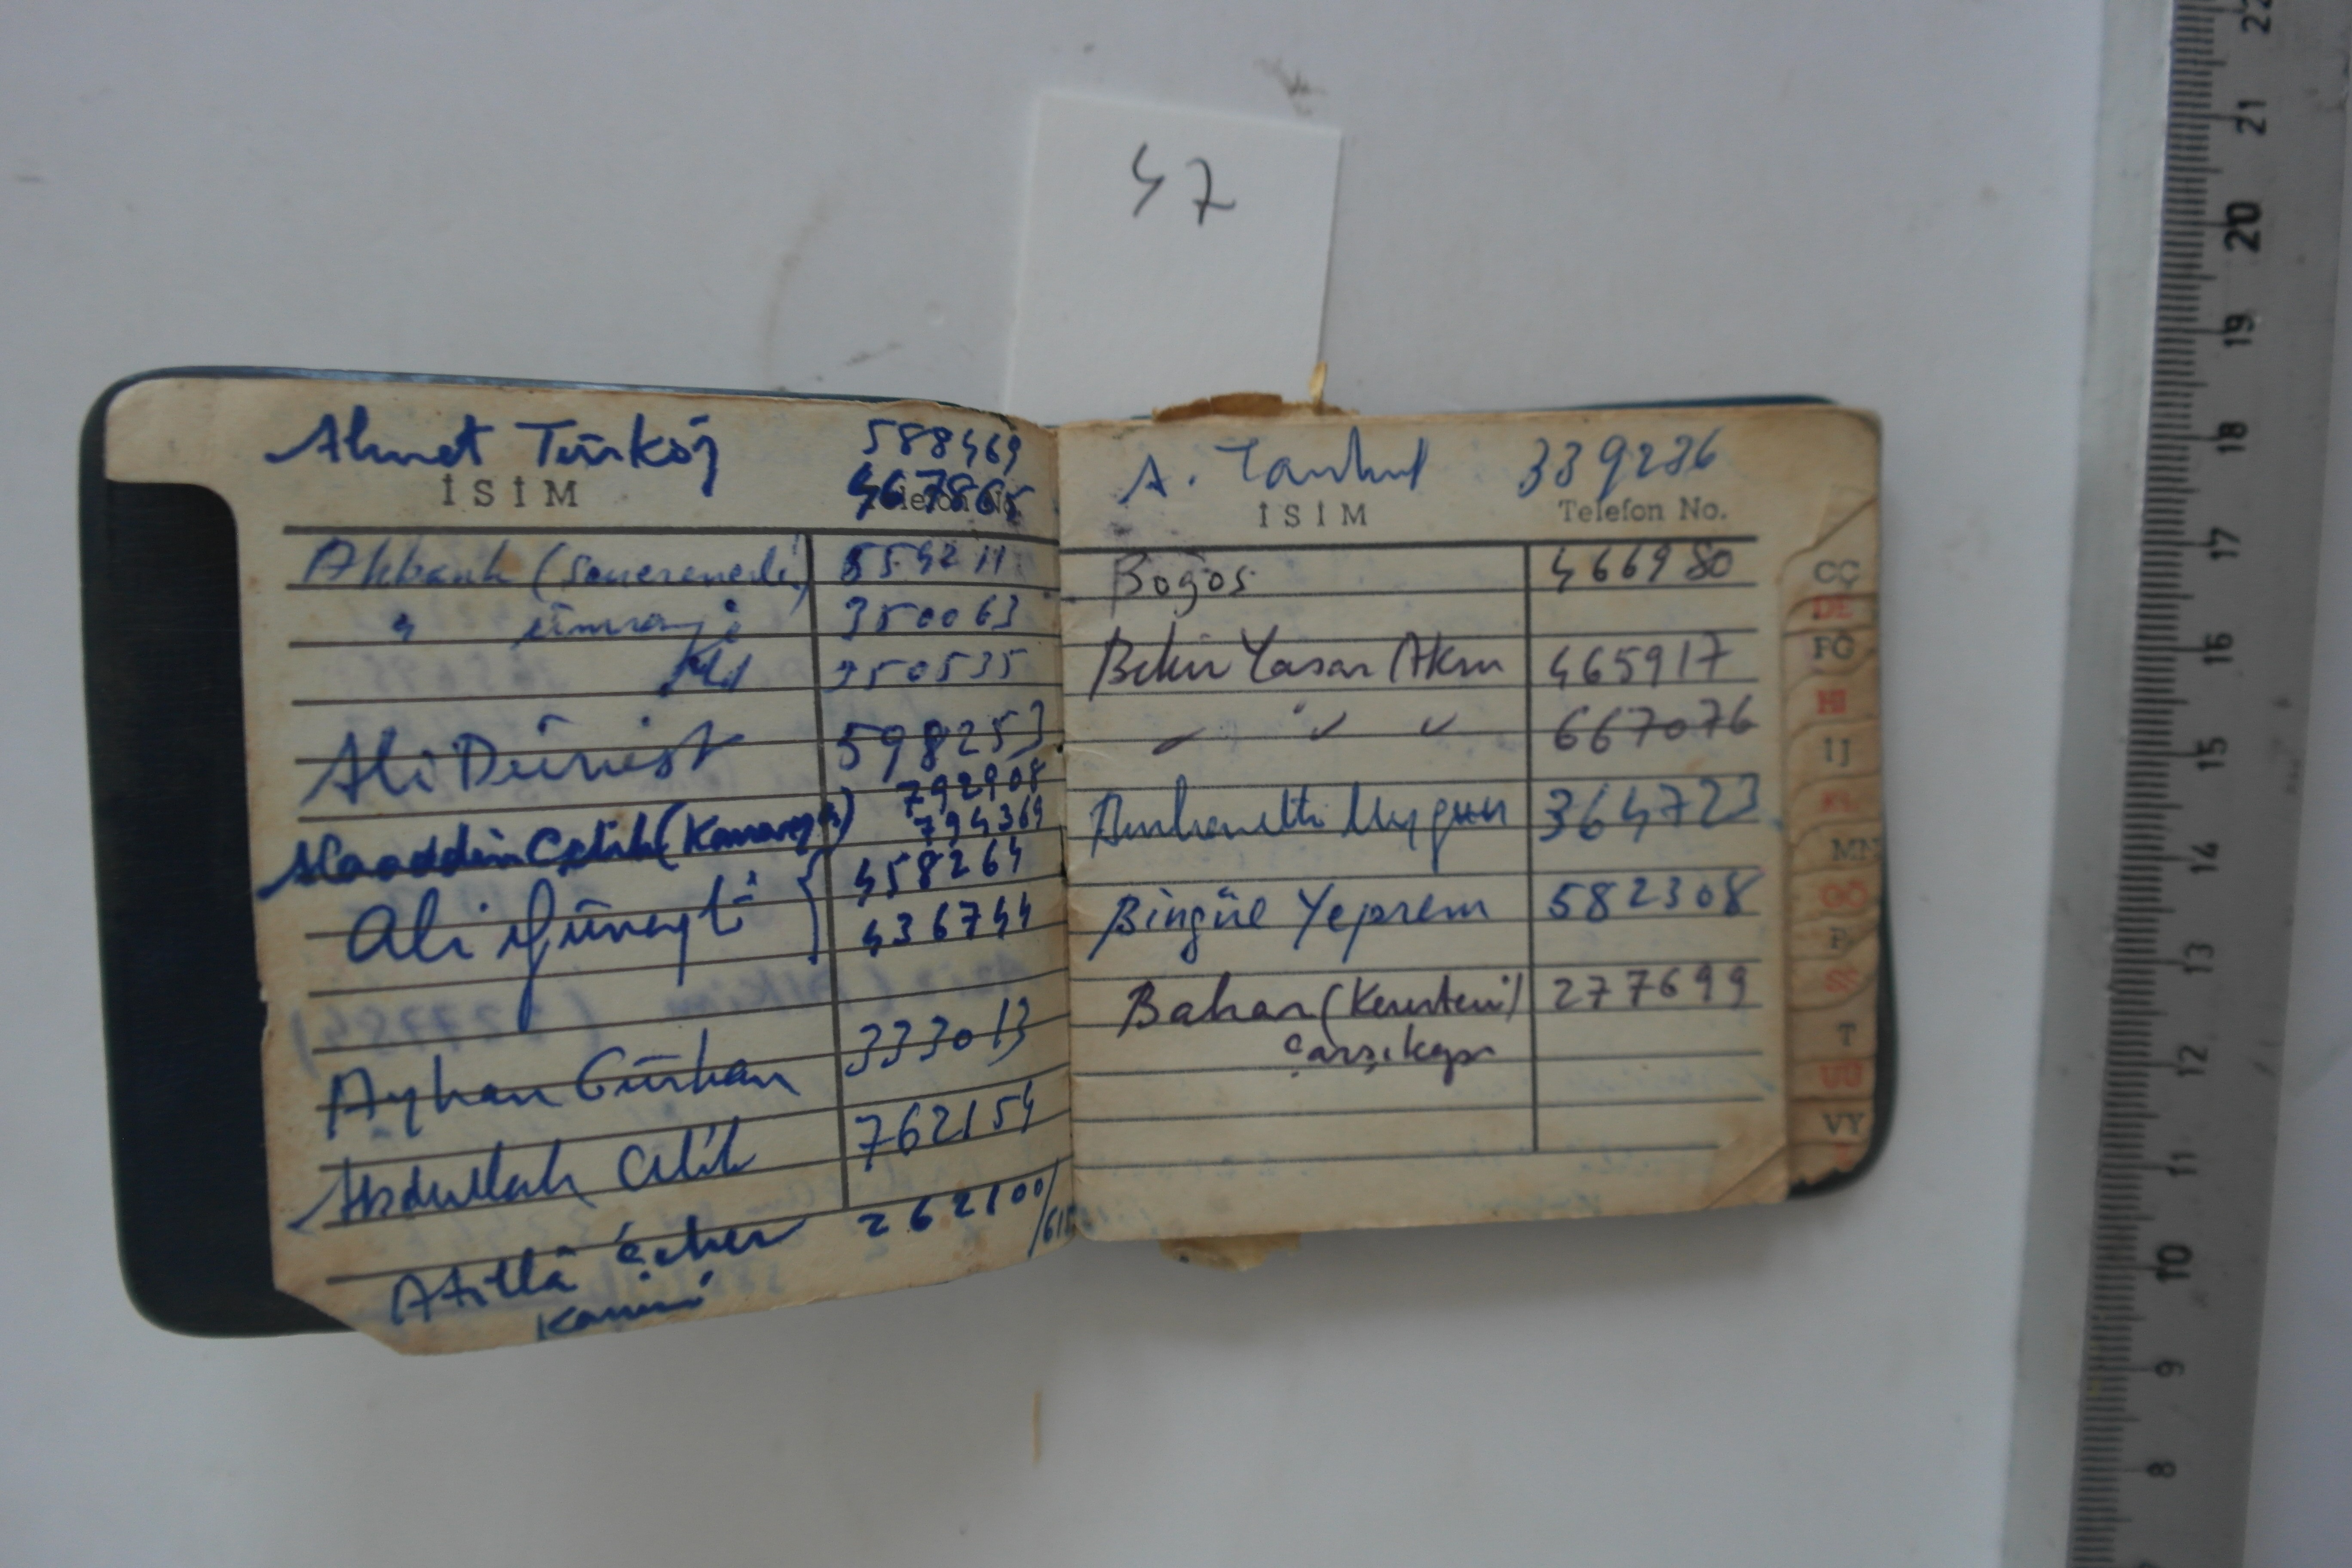 47
Ahmet Türköz 588469
467865
İSİM Telefon No.
Akbank ( 559211
" 350063
350535
Ali Dürüst 598253
792908
Alaaddin Çelik (Kanarya) 794369
Ali Güneyli { 458264
436744
Ayhan Gürhan 333013
Abdullah Çelik 762154
Atillâ 262100/
A. 339236
İSİM Telefon No.
Boğos 466980
Bekir Yaşar Akın 465917
" " " 667076
Uygun 364723
Bingül Yeprem 582308
Bahar (Keresteci) 277699
Çarşıkapı
CÇ
DE
FG
Hİ
IJ
KL
MN
OÖ
P
SŞ
T
UÜ
VY
22
21
20
19
18
17
16
15
14
13
12
11
10
9
8